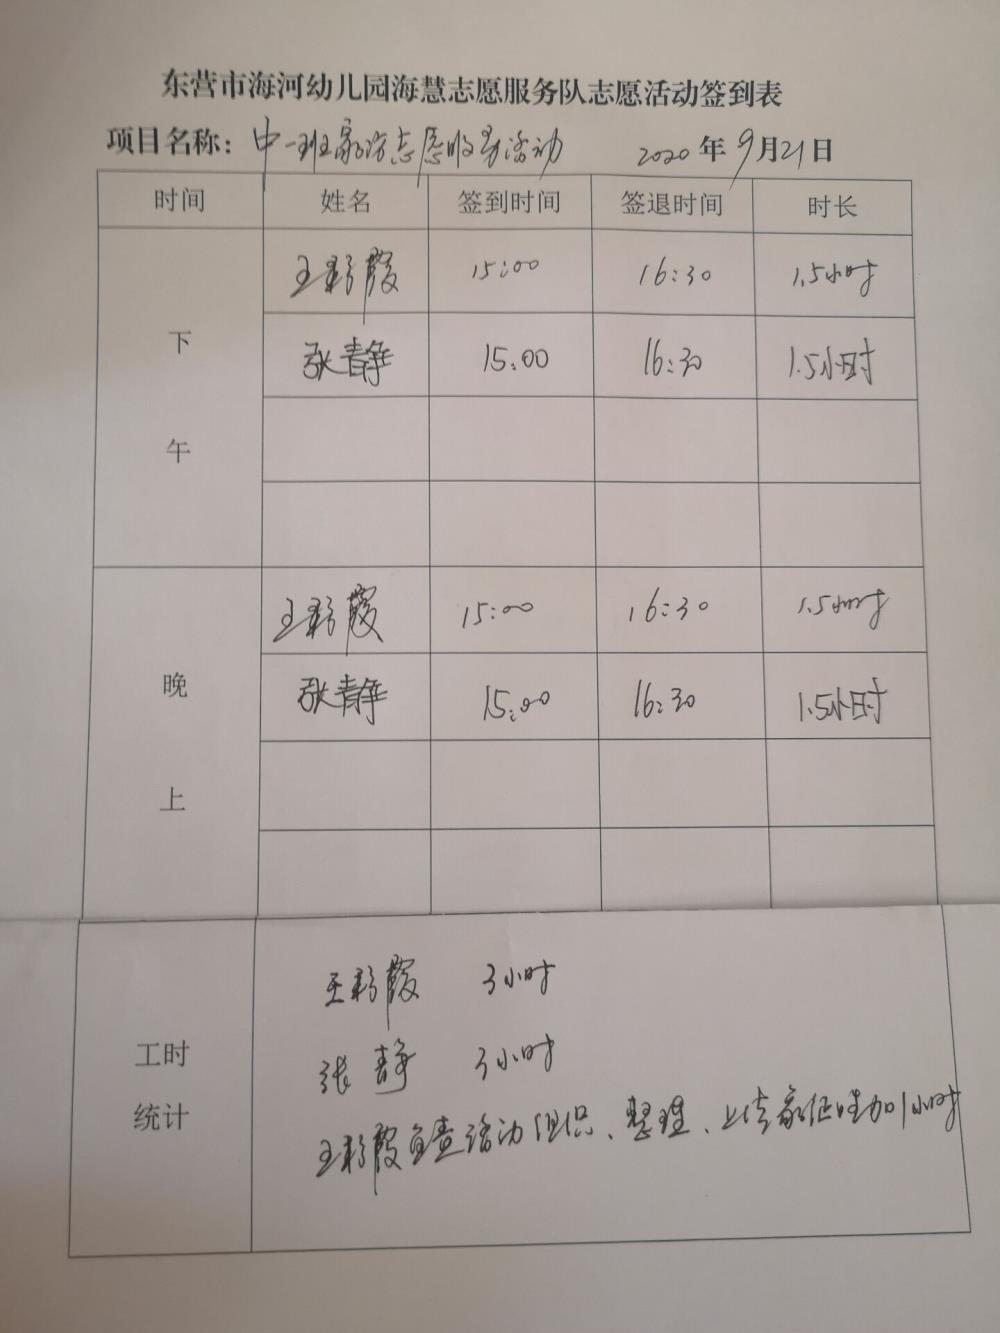 东营市海河幼儿园海慧志愿服务队志愿活动签到表
项目名称：中一班家访志愿服务活动 2020年9月21日
时间 姓名 签到时间 签退时间 时长
下午
王彩霞 15:00 16:30 1.5小时
张静 15:00 16:30 1.5小时
晚上
王彩霞 15:00 16:30 1.5小时
张静 15:00 16:30 1.5小时
工时
统计
王彩霞 3小时
张静 3小时
王彩霞负责活动组织、整理、上传 加1小时